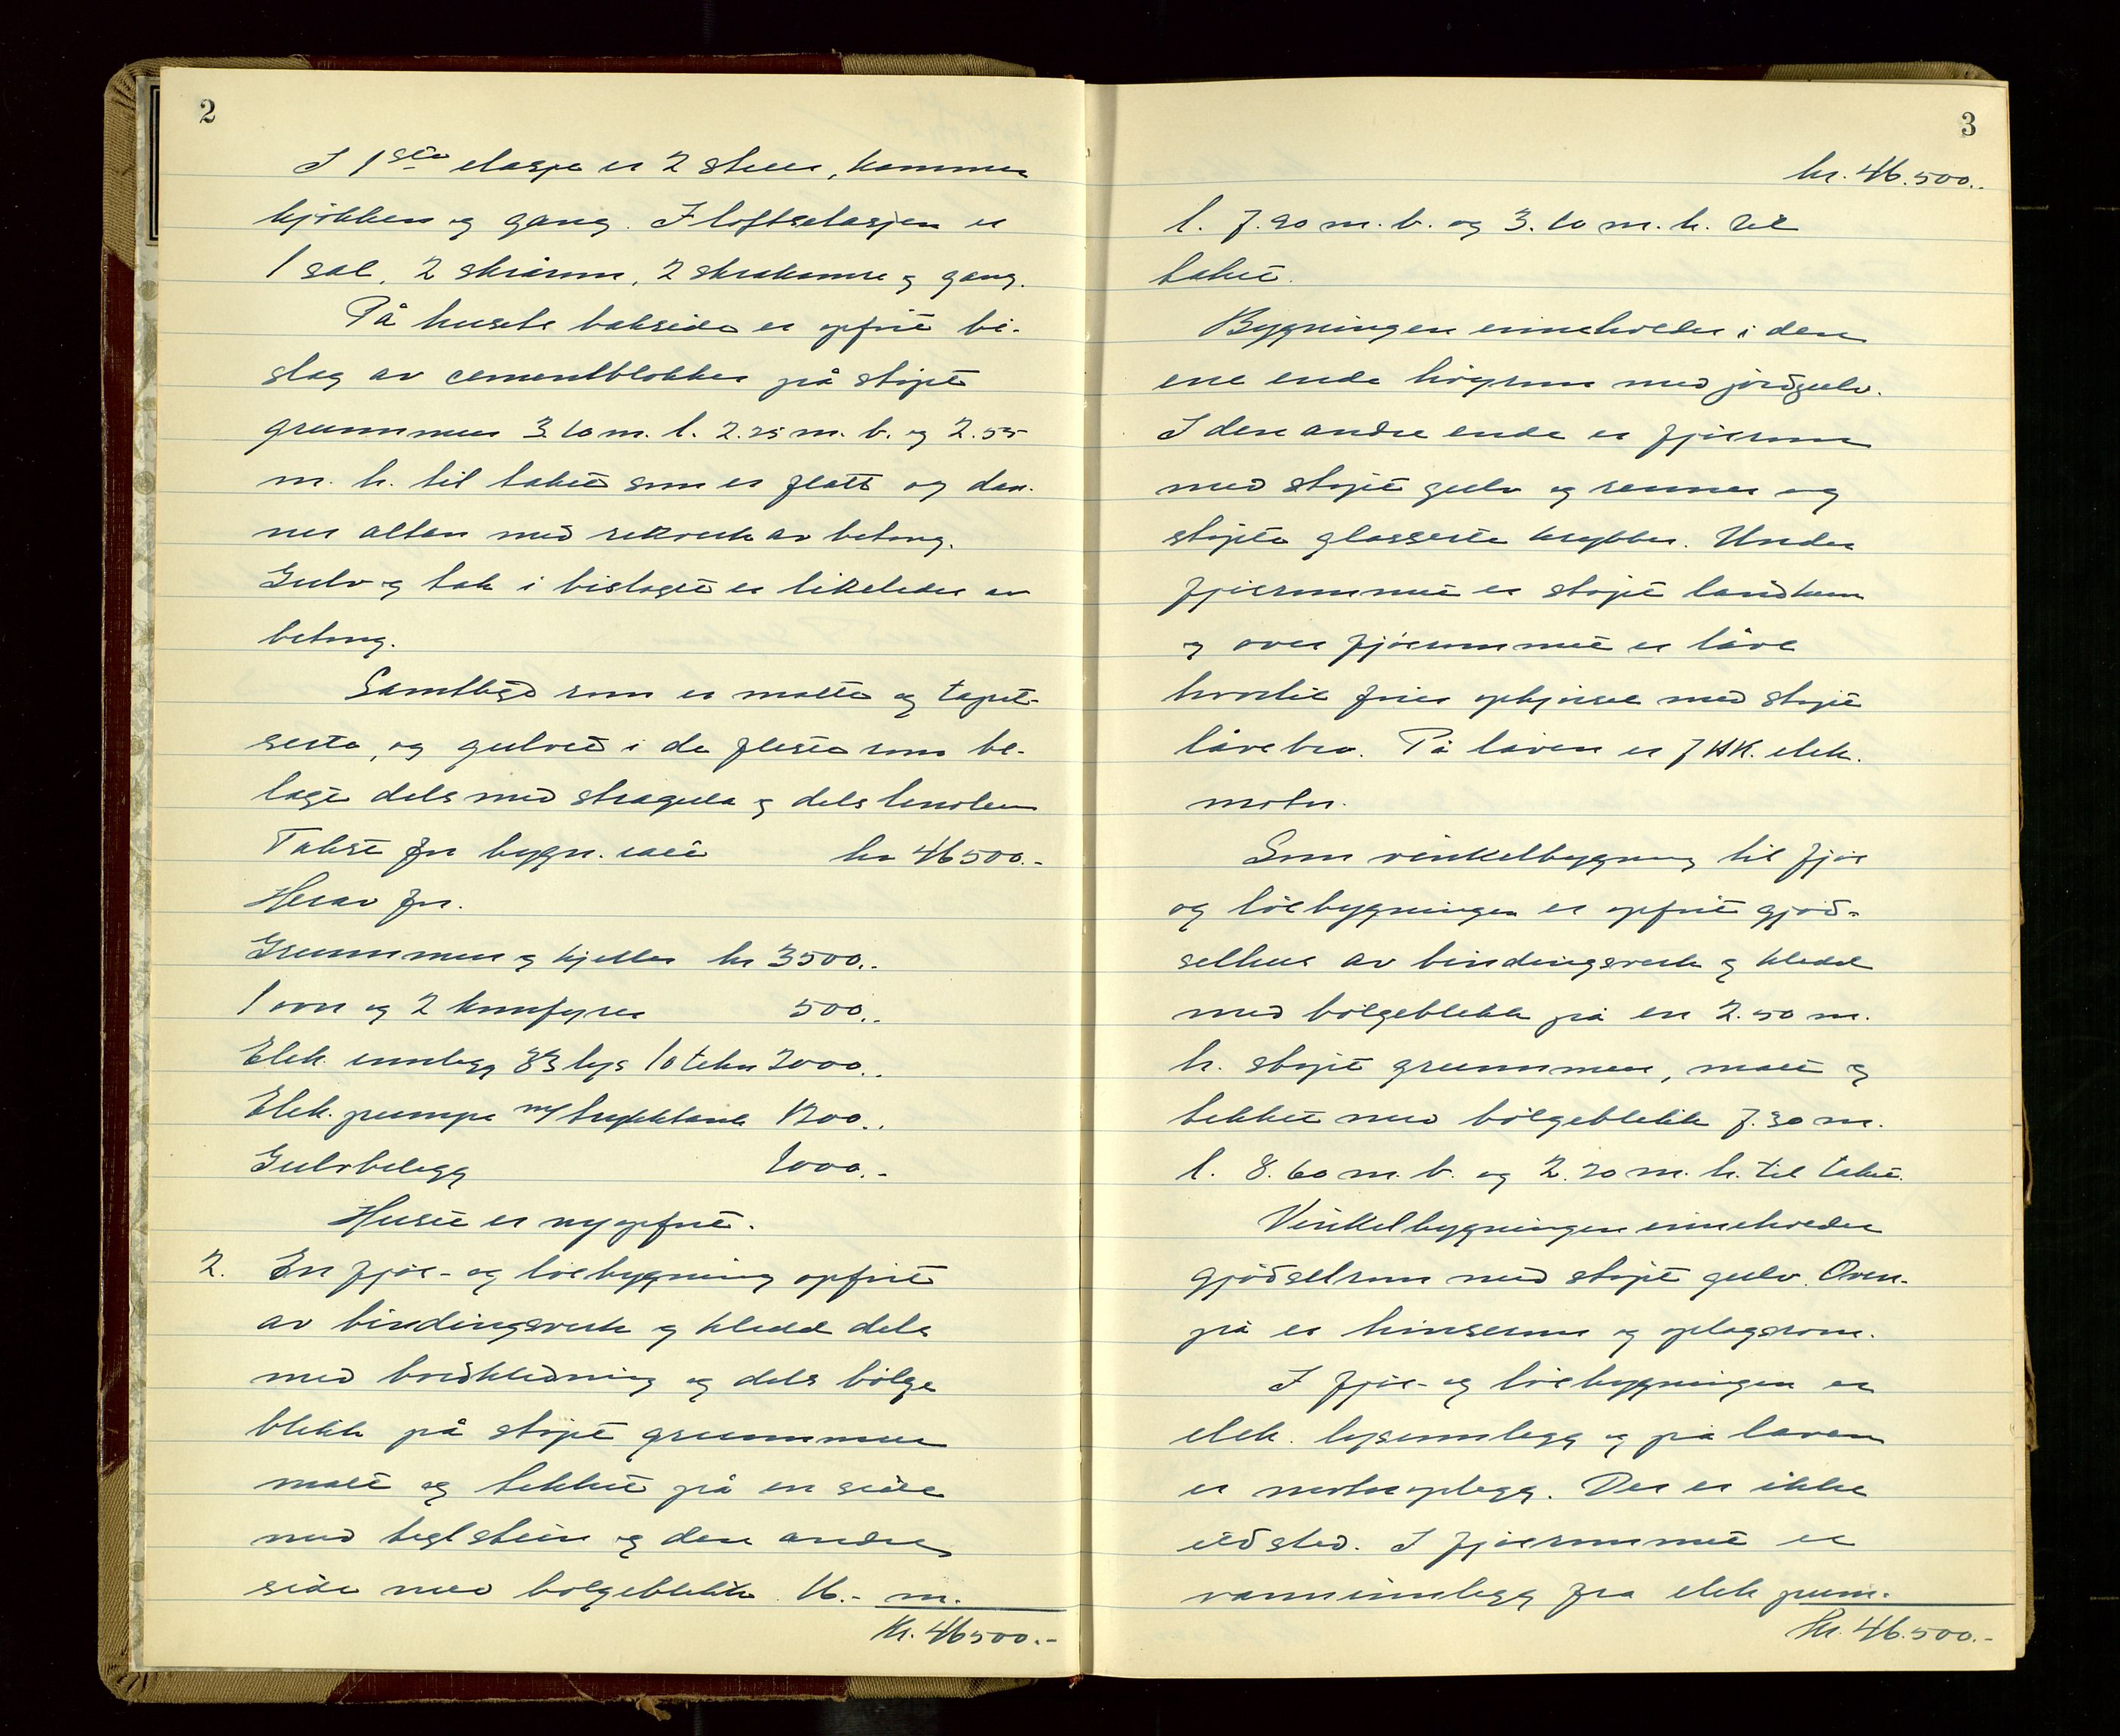 2
I 1ste etasje er 2 stuer, kammer
kjøkken og gang. I loftsetasjen er
1 sal, 2 skrårum, 2 skrakamre og gang.
På husets bakside er opført bi-
slag av cementblokker på støpt
grunnmur 3.10 m. l. 2.25 m. b. og 2.55
m. h. til taket som er flatt og dan-
ner altan med rekverk av betong.
Gulv og tak i bislaget er likeledes av
betong.
Samtlige rom er malte og tapet-
serte, og gulvet i de fleste rom be-
lagt dels med stragula og dels linoleum
Takst for bygn. kr 46500.-
Herav for.
Grunnmur og kjeller kr 3500.-
1 ovn og 2 komfyrer 500.-
Elek. innlegg 33 lys 10 tekn 2000.-
Elek. pumpe m/trykktank 1200.-
Gulvbelegg 1000.-
Huset er nyopført.
2. En fjøs- og løebygning opført
av bindingsverk og kledd dels
med bordkledning og dels bølge
blikk på støpt grunnmur
malt og tekket på en side
med teglstein og den andre
side med bølgeblikk. 16.- m.
Kr. 46500.-
3
kr. 46.500.-
l. 7.90 m. b. og 3.10 m. h. til
taket.
Bygningen inneholder i den
ene ende høyrum med jordgulv.
I den andre ende er fjøsrum
med støpt gulv og renner og
støpte glasserte krybber. Under
fjøsrummet er støpt landkum
og over fjøsrummet er låve
hvortil fører opkjørsel med støpt
låvebro. På låven er 7 HK. elek.
motor.
Som vinkelbygning til fjøs
og løebygningen er opført gjød-
selhus av bindingsverk og kledd
med bølgeblikk på en 2.50 m.
h. støpt grunnmur, malt og
tekket med bølgeblikk 7.30 m.
l. 8.60 m. b. og 2.20 m. h. til taket.
Vinkelbygningen inneholder
gjødselrum med støpt gulv. Oven-
på er hønserum og oplagsrom.
I fjøs- og løebygningen er
elek. lysinnlegg og på laven
er motoroplegg. Der er ikke
ildsted. I fjøsrummet er
vanninnlegg fra elek pum-
Kr. 46.500.-